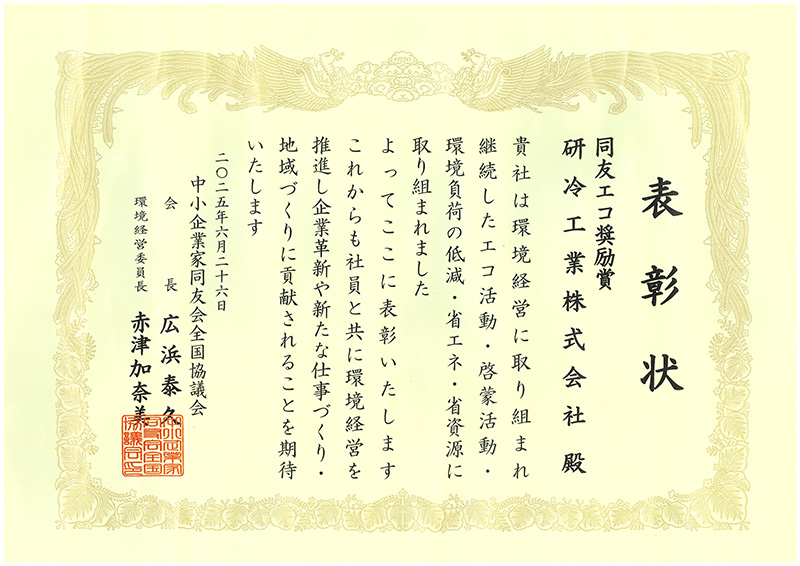 表彰状
同友エコ奨励賞
研冷工業株式会社 殿
貴社は環境経営に取り組まれ
継続したエコ活動・啓蒙活動・
環境負荷の低減・省エネ・省資源に
取り組まれました
よってここに表彰いたします
これからも社員と共に環境経営を
推進し企業革新や新たな仕事づくり・
地域づくりに貢献されることを期待
いたします
二〇二五年六月二十六日
中小企業家同友会全国協議会
会長 広浜泰久
環境経営委員長 赤津加奈美